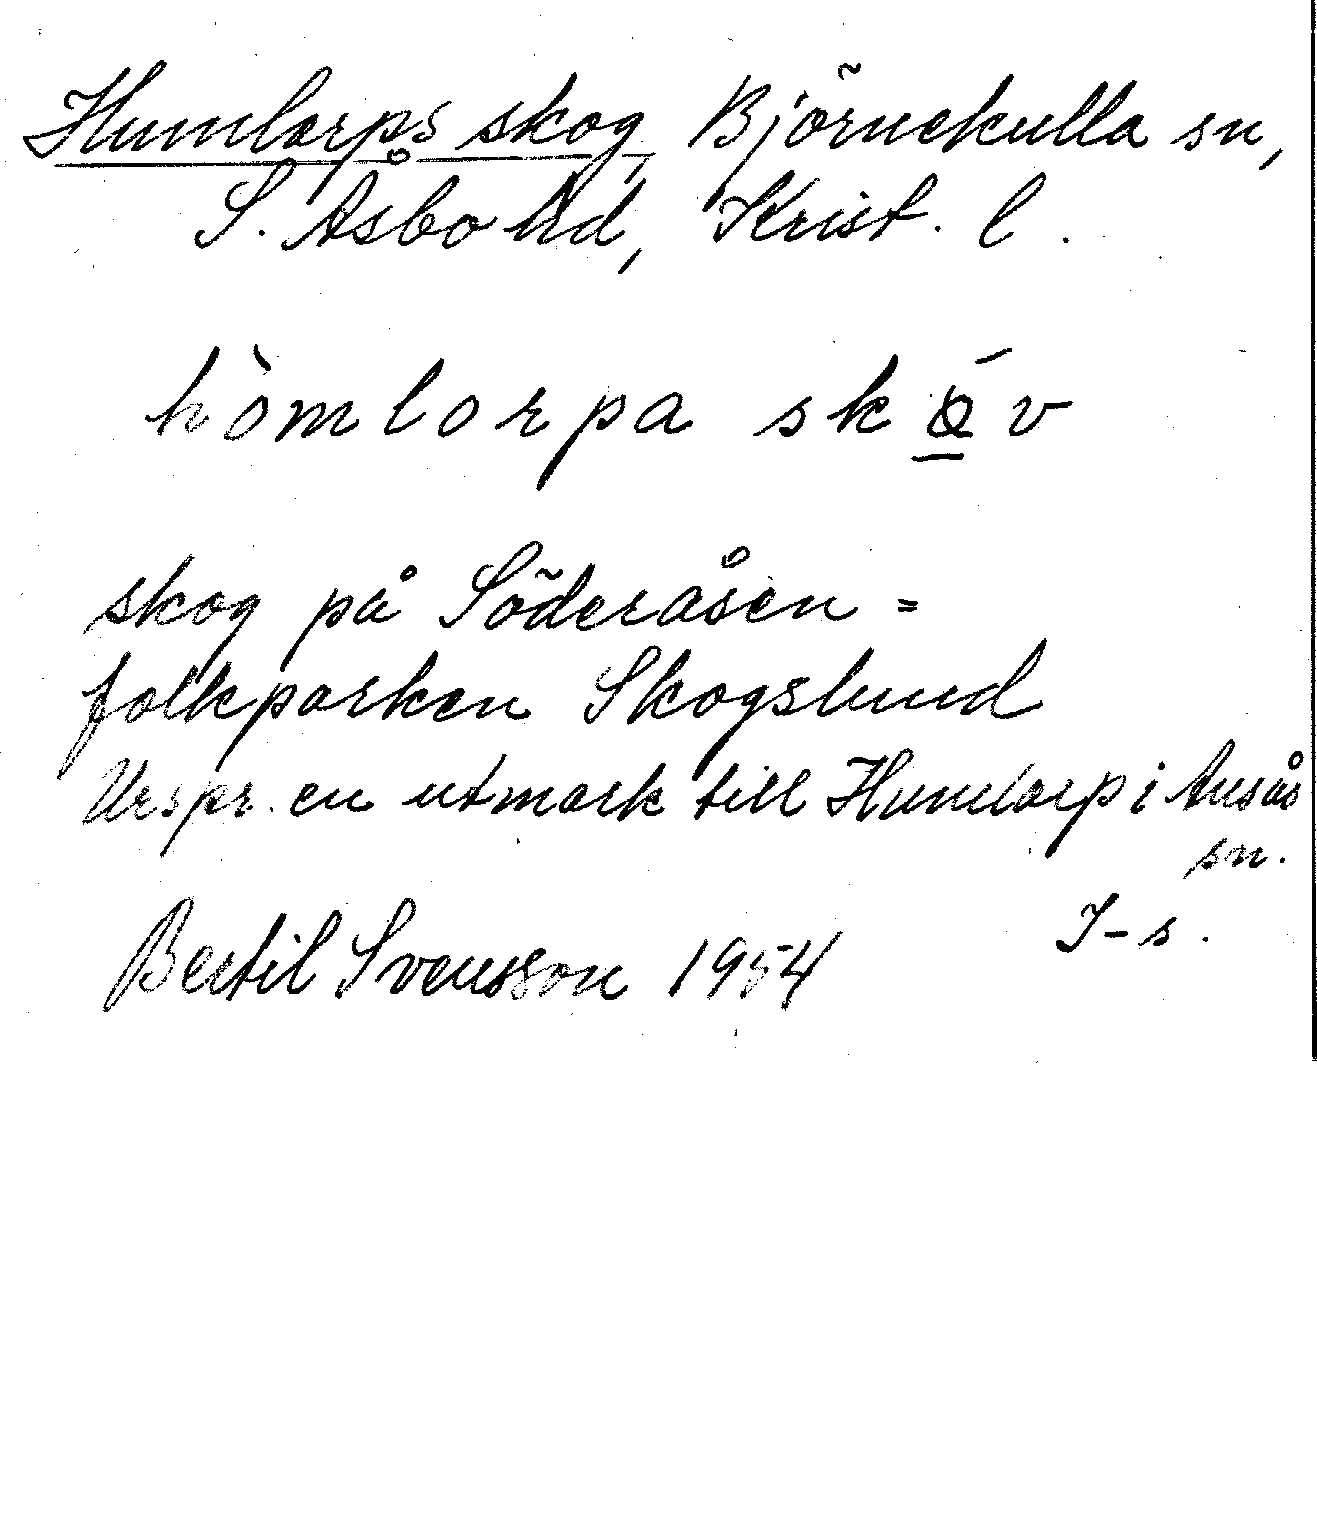 Humlarps skog, Björnekulla sn,
S. Åsbo hd, Krist. l.
hòmlorpa skǭv
skog på Söderåsen =
folkparken Skogslund
Urspr. en utmark till Humlarp i Ausås
sn.
J-s.
Bertil Svensson 1954